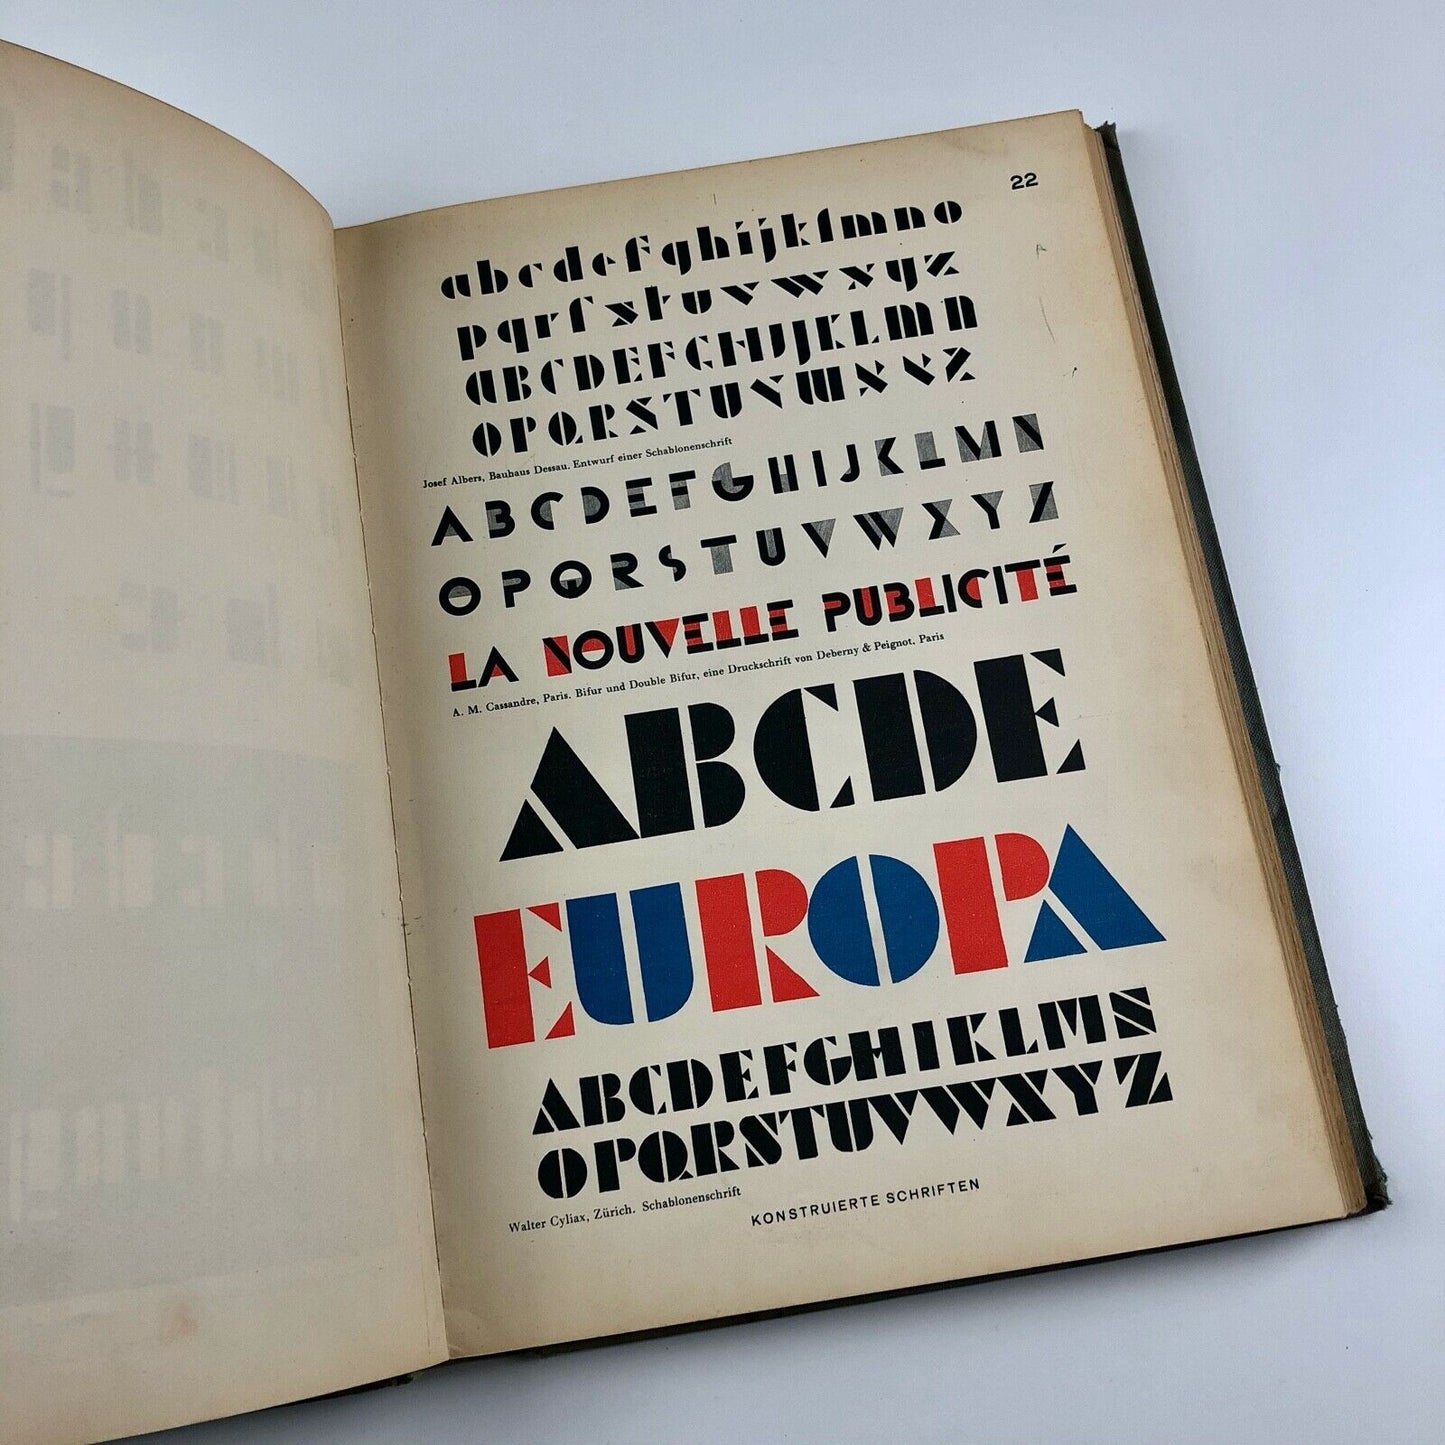 22
abcdefghijklmno
pqrſstuvwxyz
ABCDEFGHIJKLMN
OPQRSTUVWXYZ
Josef Albers, Bauhaus Dessau. Entwurf einer Schablonenschrift
ABCDEFGHIJKLMN
OPQRSTUVWXYZ
LA NOUVELLE PUBLICITÉ
A. M. Cassandre, Paris. Bifur und Double Bifur, eine Druckschrift von Deberny & Peignot, Paris
ABCDE
EUROPA
ABCDEFGHIKLMN
OPQRSTUVWXYZ
Walter Cyliax, Zürich. Schablonenschrift
KONSTRUIERTE SCHRIFTEN